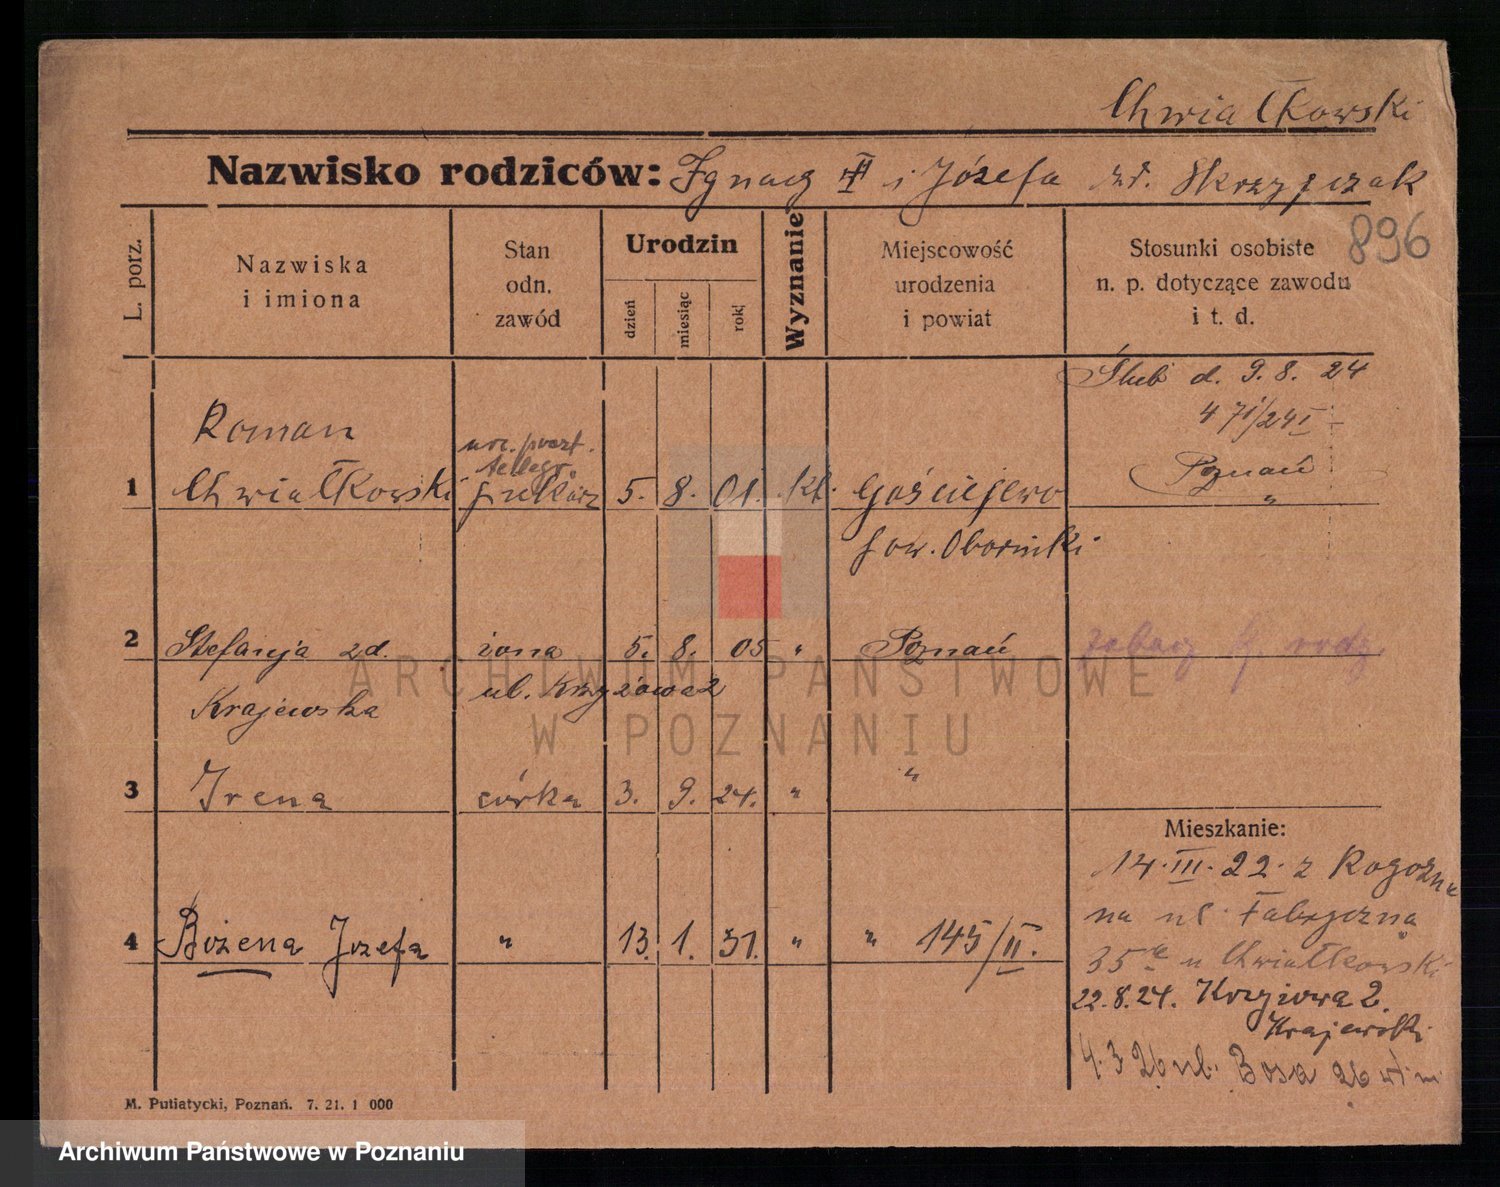 Chwiałkowski
Nazwisko rodziców: Ignacy i Józefa zd. Skrzypczak
896
L. porz.
Nazwiska
i imiona
Stan
odn.
zawód
Urodzin
dzień
miesiąc
rok
Wyznanie
Miejscowość
urodzenia
i powiat
Stosunki osobiste
n. p. dotyczące zawodu
i t. d.
Ślub d. 9. 8. 24
471/24 I
Poznań
"
Roman
urz. poczt.
telegr.
1 Chwiałkowski piekarz 5. 8. 01. kt. Gościejewo
pow. Obornicki
2 Stefanja zd. żona 5. 8. 05 " Poznań zobacz
Krajewska ul. Krzyżowa 2
3 Irena córka 3. 9. 24. " "
Mieszkanie:
14. III. 22. z Rogoźna
na ul Fabryczną
4 Bożena Józefa " 13. 1. 31. " " 145/II.
35 u Chwiałkowski
22.8.24. Krzyżowa 2.
Krajewski
4. 3 26 ul. Bosa 26
M. Putiatycki, Poznań. 7. 21. 1 000
ARCHIWUM PAŃSTWOWE
W POZNANIU
Archiwum Państwowe w Poznaniu